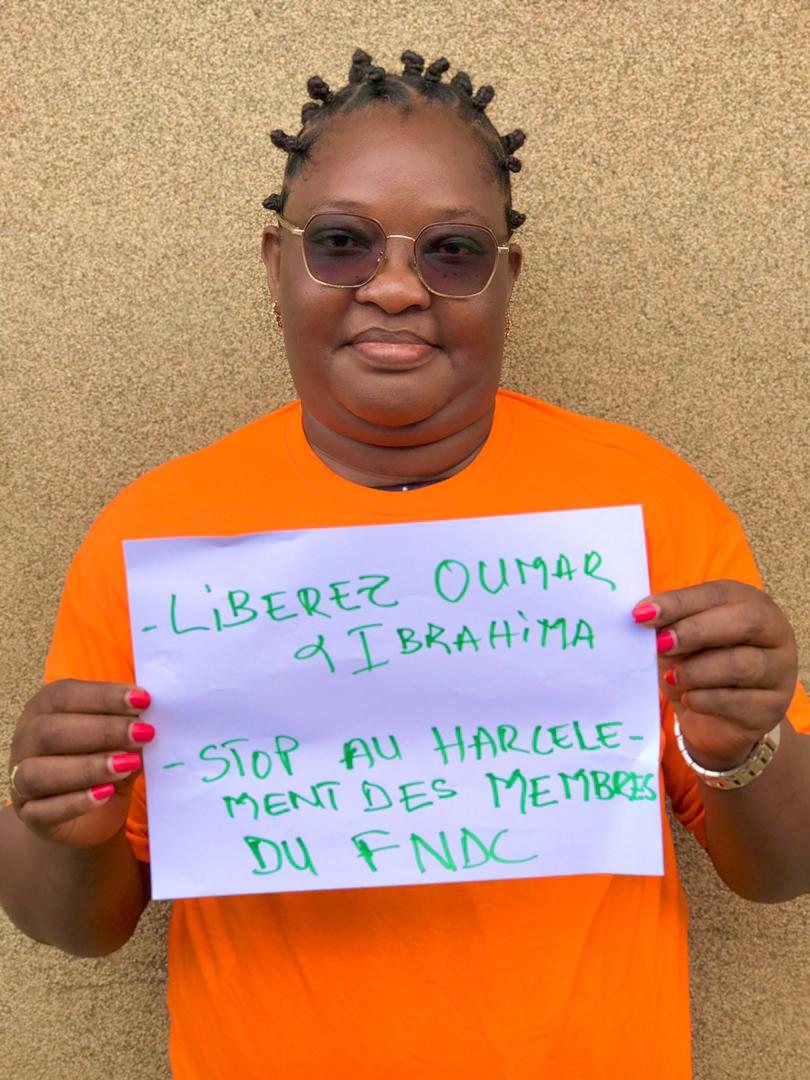 - LiBEREZ OUMAR
& IBRAHiMA
- STOP AU HARCELE-
MENT DES MEMBRES
DU FNDC